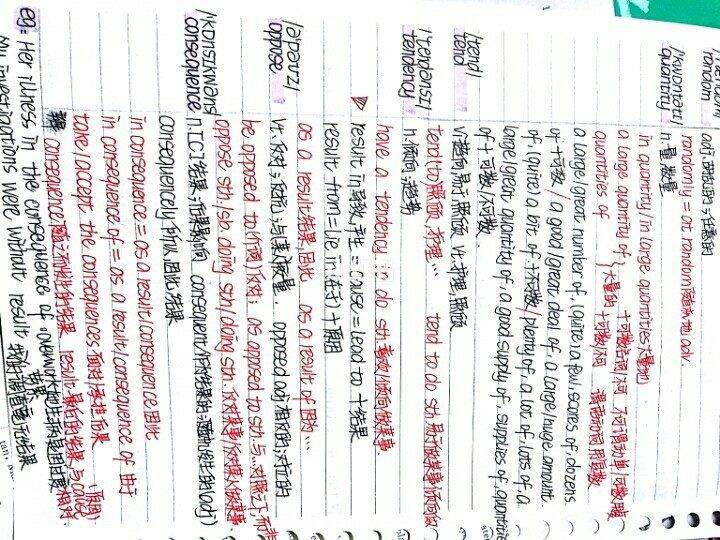 random adj.随机的;任意的
randomly = at random 随意地 adv.
/kwɒntəti/
quantity n.量,数量
in quantity/in large quantities 大量地
a large quantity of
quantities of
大量的+可数/不可
a large/great number of, (quite) a few, scores of, dozens
of+可数/ a good/great deal of, a large/huge amount
of, (quite) a bit of+不可数/ plenty of, a lot of, lots of, a
large/great quantity of, a good supply of, supplies of, quantities
of+可数/不可数
/tend/
tend vi.趋向,易于,照顾 vt.护理,照顾
tend to 照顾,护理… tend to do sth 易于做某事/倾向做
/'tendənsɪ/
tendency n.倾向,趋势
have a tendency to do sth 喜欢/倾向做某事
result in 导致,产生 = cause = lead to +结果
result from = lie in(在于)+原因
as a result 结果,因此 as a result of 因为…
/ə'pəʊz/
oppose vt.反对;反抗;与某人较量. opposed adj 相反的;对立的
be opposed to (介词)反对; as opposed to sth.与…对照之下,而非
oppose sth./sb. doing sth./doing sth. 反对某事/反对某人做某事
/'kɒnsɪkwəns/
consequence n.[C]结果,后果,影响 consequent 作为结果的;随之发生的(adj)
consequencely 所以,因此,结果
in consequence = as a result/consequence 因此
in consequence of = as a result/consequence of 由于
take/accept the consequences 面对/承担后果
consequence 随之而来的结果 result 最后的结果,与cause相对
eg: Her illness in the consequence of overwork 她生病是因过度
结果
My investigations were without result 我的调查毫无结果